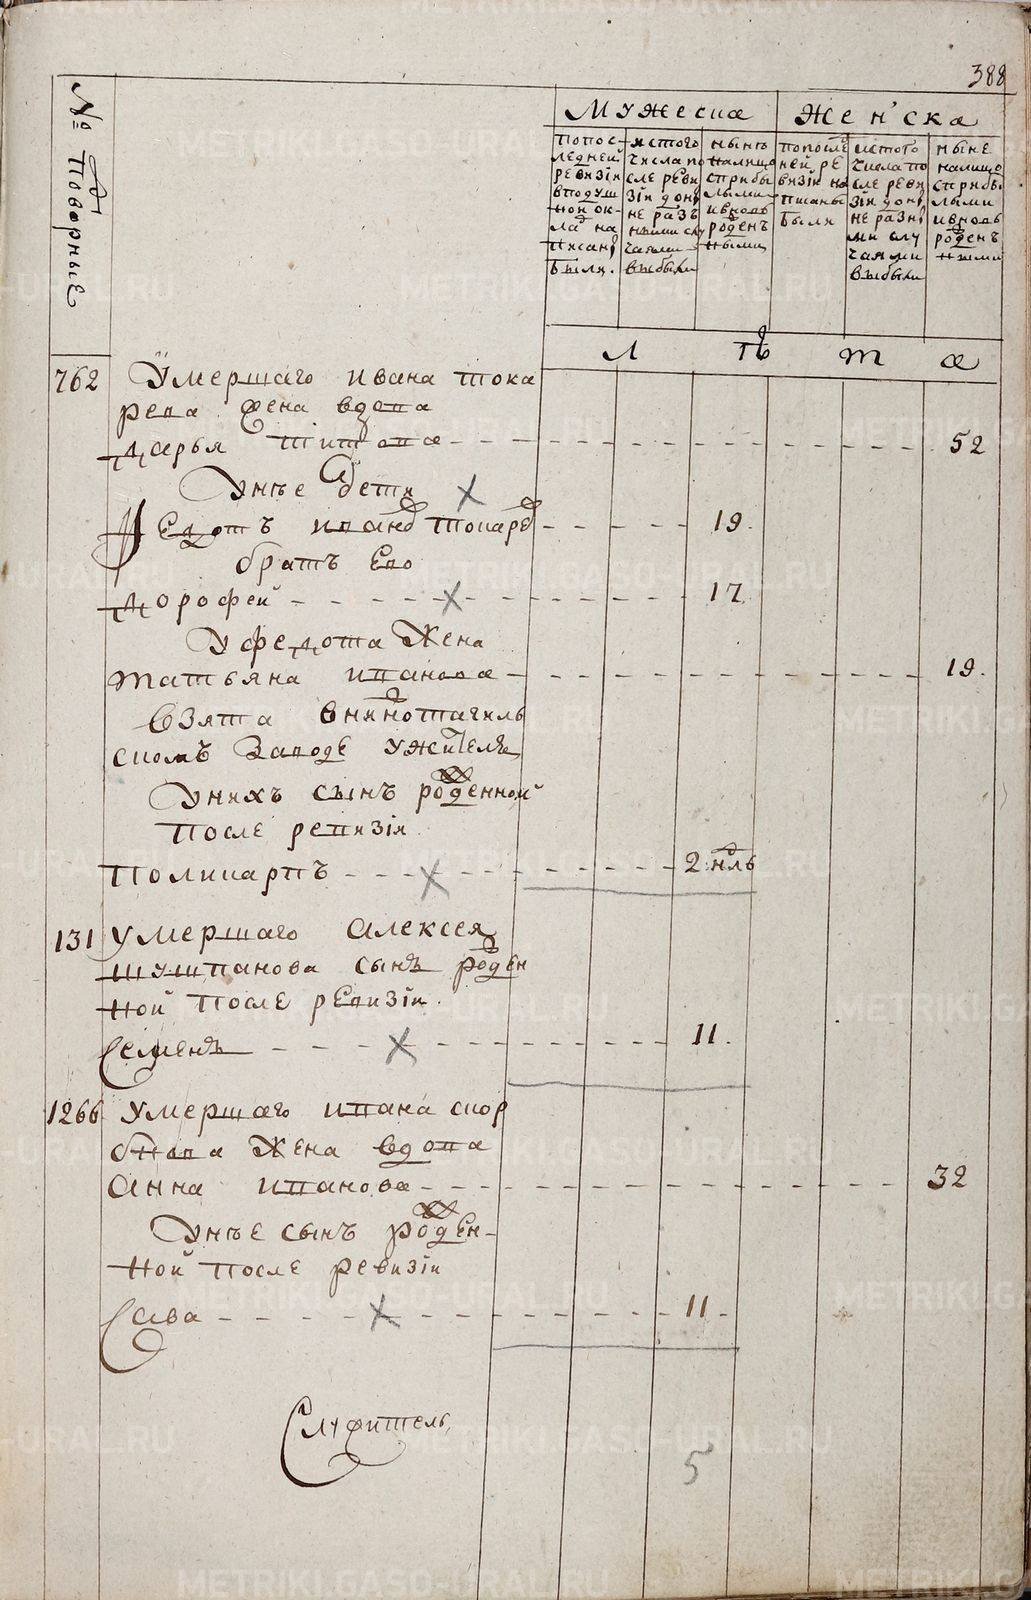 388
№ Дворные
Мужеска
Жен'ска
попос-
ледней
ревизіи
вподуш
ной ок-
ладъ на
писаны
были.
истого
числа по
сле реви
зіи доны
не разъ
ными слу
чаями
выбыли
нынѣ
налицо
сприбы
лыми
ивновь
рожденъ
ными
попослѣ
ней ре
визіи на
писаны
были
истого
числа по
сле реви
зіи доны
не разны
ми слу
чаями
выбыли
ныне
налицо
сприбы
лыми
ивновь
рожденъ
ными
Л ѣ т а
762 Умершаго ивана тока
рева жена вдова
дарья титова 52
Унѣе дети
Федотъ иванов токарев 19.
братъ Ево
дорофей 17
У федота Жена
татьяна иванова 19.
Взята внижнотагиль
скомъ Заводе ужителя
Унихъ сынъ рожденной
после ревизіи
поликарпъ 2 нль
131 умершаго алексея
шушпанова сынъ рожден
ной после ревизіи.
Семенъ 11.
1266 умершаго ивана скор
бнова Жена вдова
анна иванова 32
Унѣе сынъ рожден-
ной после ревизіи
Сава 11.
Служитель
5
METRIKI.GASO-URAL.RU